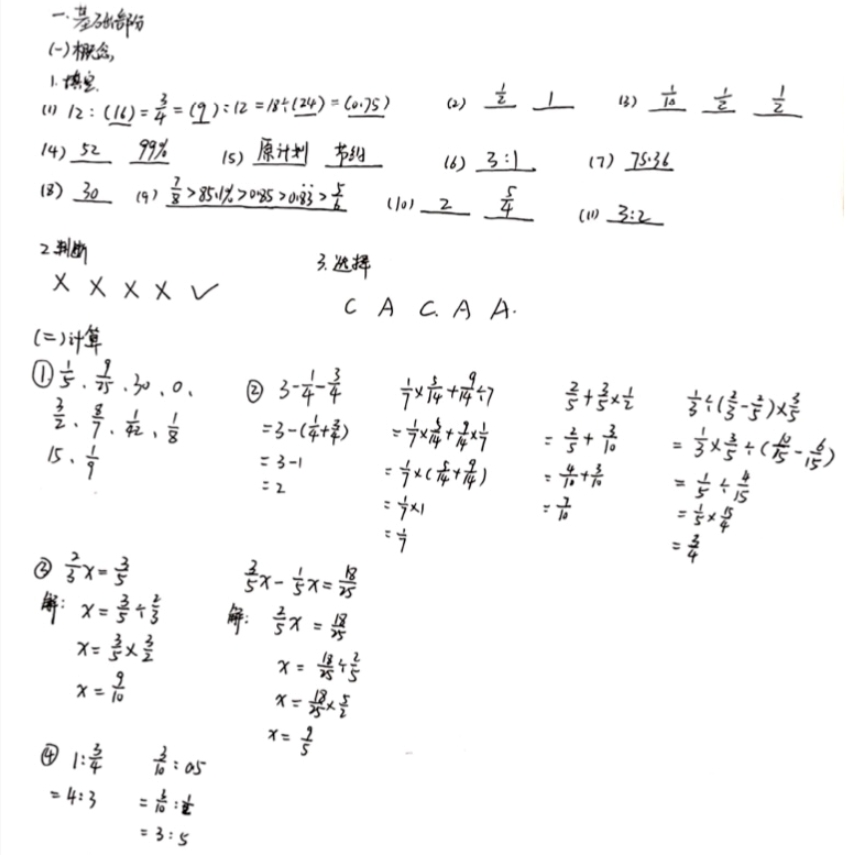 一.基础部份
(一)概念,
1.填空.
(1) 12:(16)=3/4=(9):12=18÷(24)=(0.75) (2) 1/2 1 (3) 1/10 1/2 1/2
(4) 52 99% (5) 原计划 节约 (6) 3:1 (7) 75.36
(8) 30 (9) 7/8>85.1%>0.85>0.8̇3̇>5/6 (10) 2 5/4 (11) 3:2
2.判断 3.选择
X X X X ✓
C A C. A A.
(二)计算
① 1/5、9/25、30、0、
3/2、8/7、1/42、1/8
15、1/9
② 3-1/4-3/4
=3-(1/4+3/4)
=3-1
=2
1/7×5/14+9/14÷7
=1/7×5/14+9/14×1/7
=1/7×(5/14+9/14)
=1/7×1
=1/7
2/5+3/5×1/2
=2/5+3/10
=4/10+3/10
=7/10
1/3÷(2/3-2/5)×3/5
=1/3×3/5÷(10/15-6/15)
=1/5÷4/15
=1/5×15/4
=3/4
③ 2/3x=3/5
解: x=3/5÷2/3
x=3/5×3/2
x=9/10
3/5x-1/5x=18/25
解: 2/5x=18/25
x=18/25÷2/5
x=18/25×5/2
x=9/5
④ 1:3/4
=4:3
3/10:0.5
=3/10:1/2
=3:5